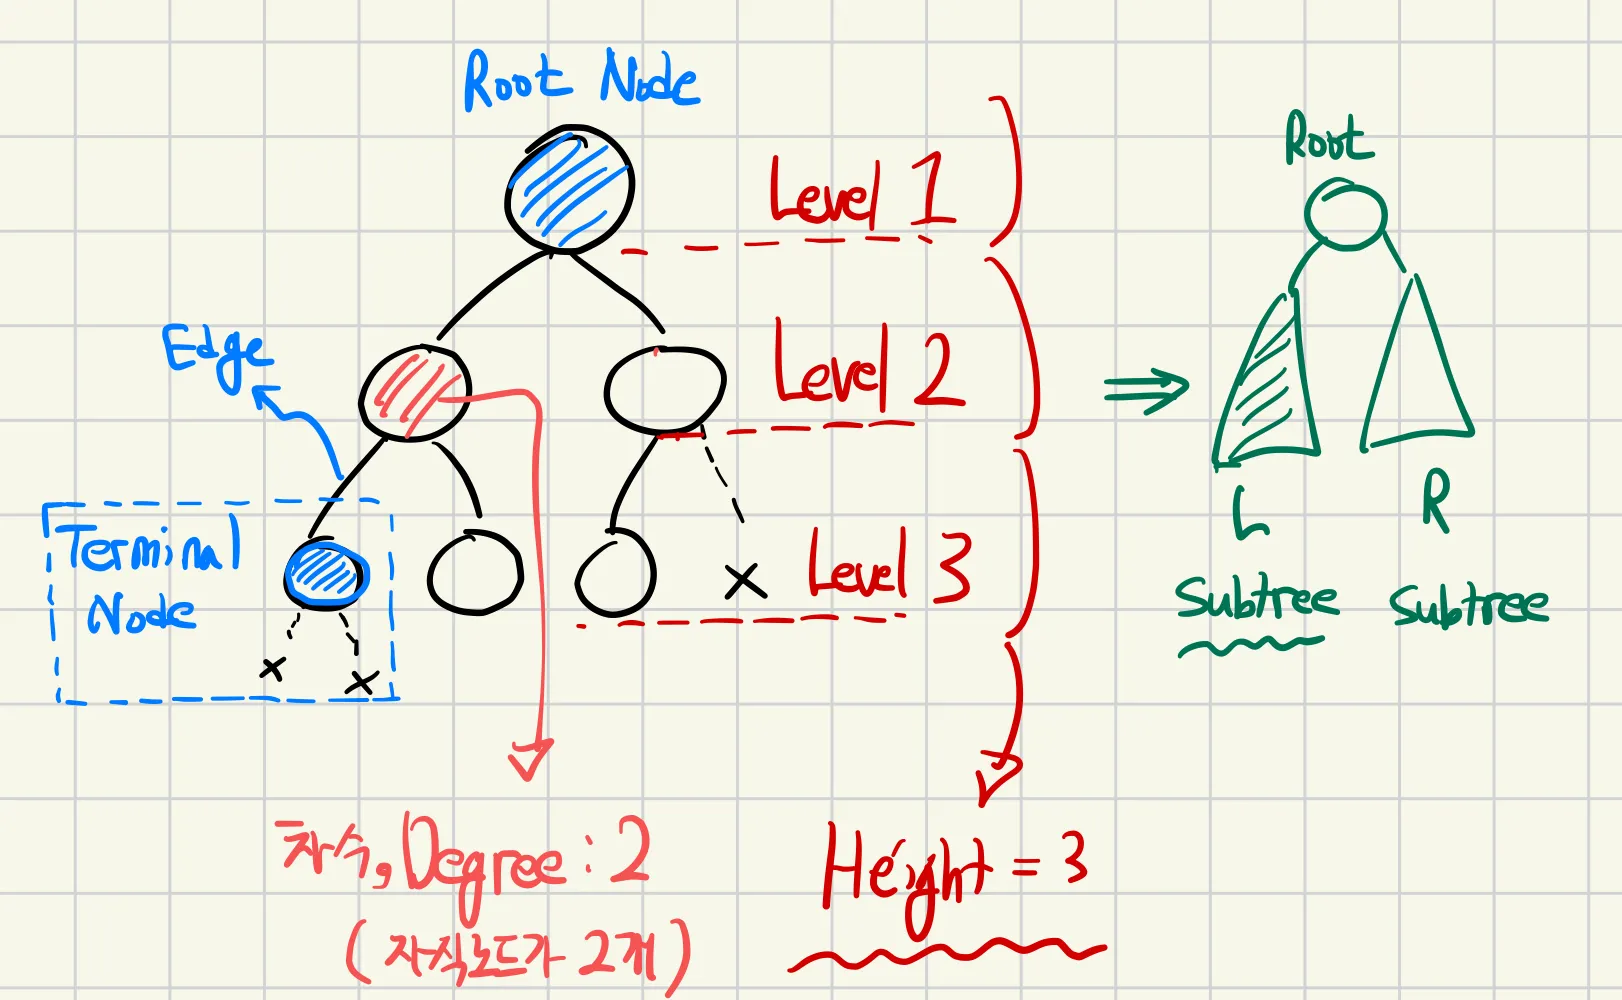 Root Node
Level 1
Edge
Level 2
Terminal
Node
Level 3
차수, Degree : 2
(자식노드가 2개)
Height = 3
Root
L
Subtree
R
Subtree